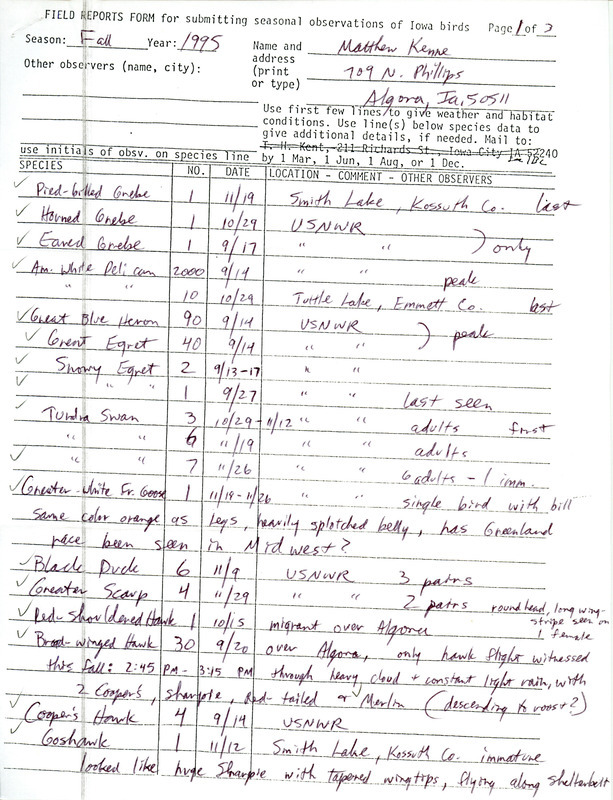 FIELD REPORTS FORM for submitting seasonal observations of Iowa birds Page 1 of 3
Season: Fall Year: 1995 Name and address (print or type) Matthew Kenne
Other observers (name, city): 709 N. Phillips
Algona, Ia, 50511
Use first few lines to give weather and habitat
conditions. Use line(s) below species data to
give additional details, if needed. Mail to:
T. H. Kent, 211 Richards St., Iowa City IA 52240
use initials of obsv. on species line by 1 Mar, 1 Jun, 1 Aug, or 1 Dec.
SPECIES NO. DATE LOCATION - COMMENT - OTHER OBSERVERS
Pied-billed Grebe 1 11/19 Smith Lake, Kossuth Co. last
Horned Grebe 1 10/29 USNWR
Eared Grebe 1 9/17 " " ) only
Am. White Pelican 2000 9/14 " " peak
" " 10 10/29 Tuttle Lake, Emmett Co. last
Great Blue Heron 90 9/14 USNWR
Great Egret 40 9/14 " " ) peak
Snowy Egret 2 9/13-17 " "
" " 1 9/27 last seen
Tundra Swan 3 10/29-11/12 " " adults first
" " 6 11/19 " " adults
" " 7 11/26 " " 6 adults - 1 imm.
Greater-White Fr. Goose 1 11/19-11/26 " " single bird with bill
same color orange as legs, heavily splotched belly, has Greenland
race been seen in Midwest?
Black Duck 6 11/9 USNWR 3 pairs
Greater Scaup 4 11/29 " " 2 pairs round head, long wing-
stripe seen on
1 female
Red-shouldered Hawk 1 10/15 migrant over Algona
Broad-winged Hawk 30 9/20 over Algona, only hawk flight witnessed
this fall: 2:45 PM - 3:15 PM through heavy cloud + constant light rain, with
2 Cooper's, sharpie, Red-tailed & Merlin (descending to roost?)
Cooper's Hawk 4 9/14 USNWR
Goshawk 1 11/12 Smith Lake, Kossuth Co. immature
looked like huge Sharpie with tapered wingtips, flying along shelterbelt